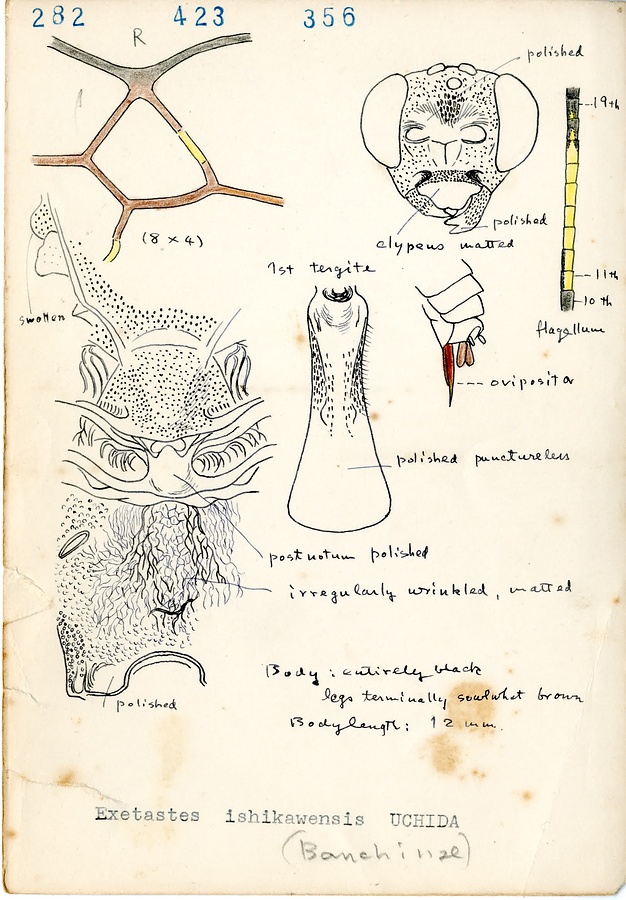 282 423 356
R
polished
19th
(8 x 4)
polished
clypeus matted
11th
10th
1st tergite
swollen
flagellum
ovipositor
polished punctureless
postnotum polished
irregularly wrinkled, matted
Body: entirely black
legs terminally somwhat brown
Body length: 12 mm.
polished
Exetastes ishikawensis UCHIDA
(Banchinae)